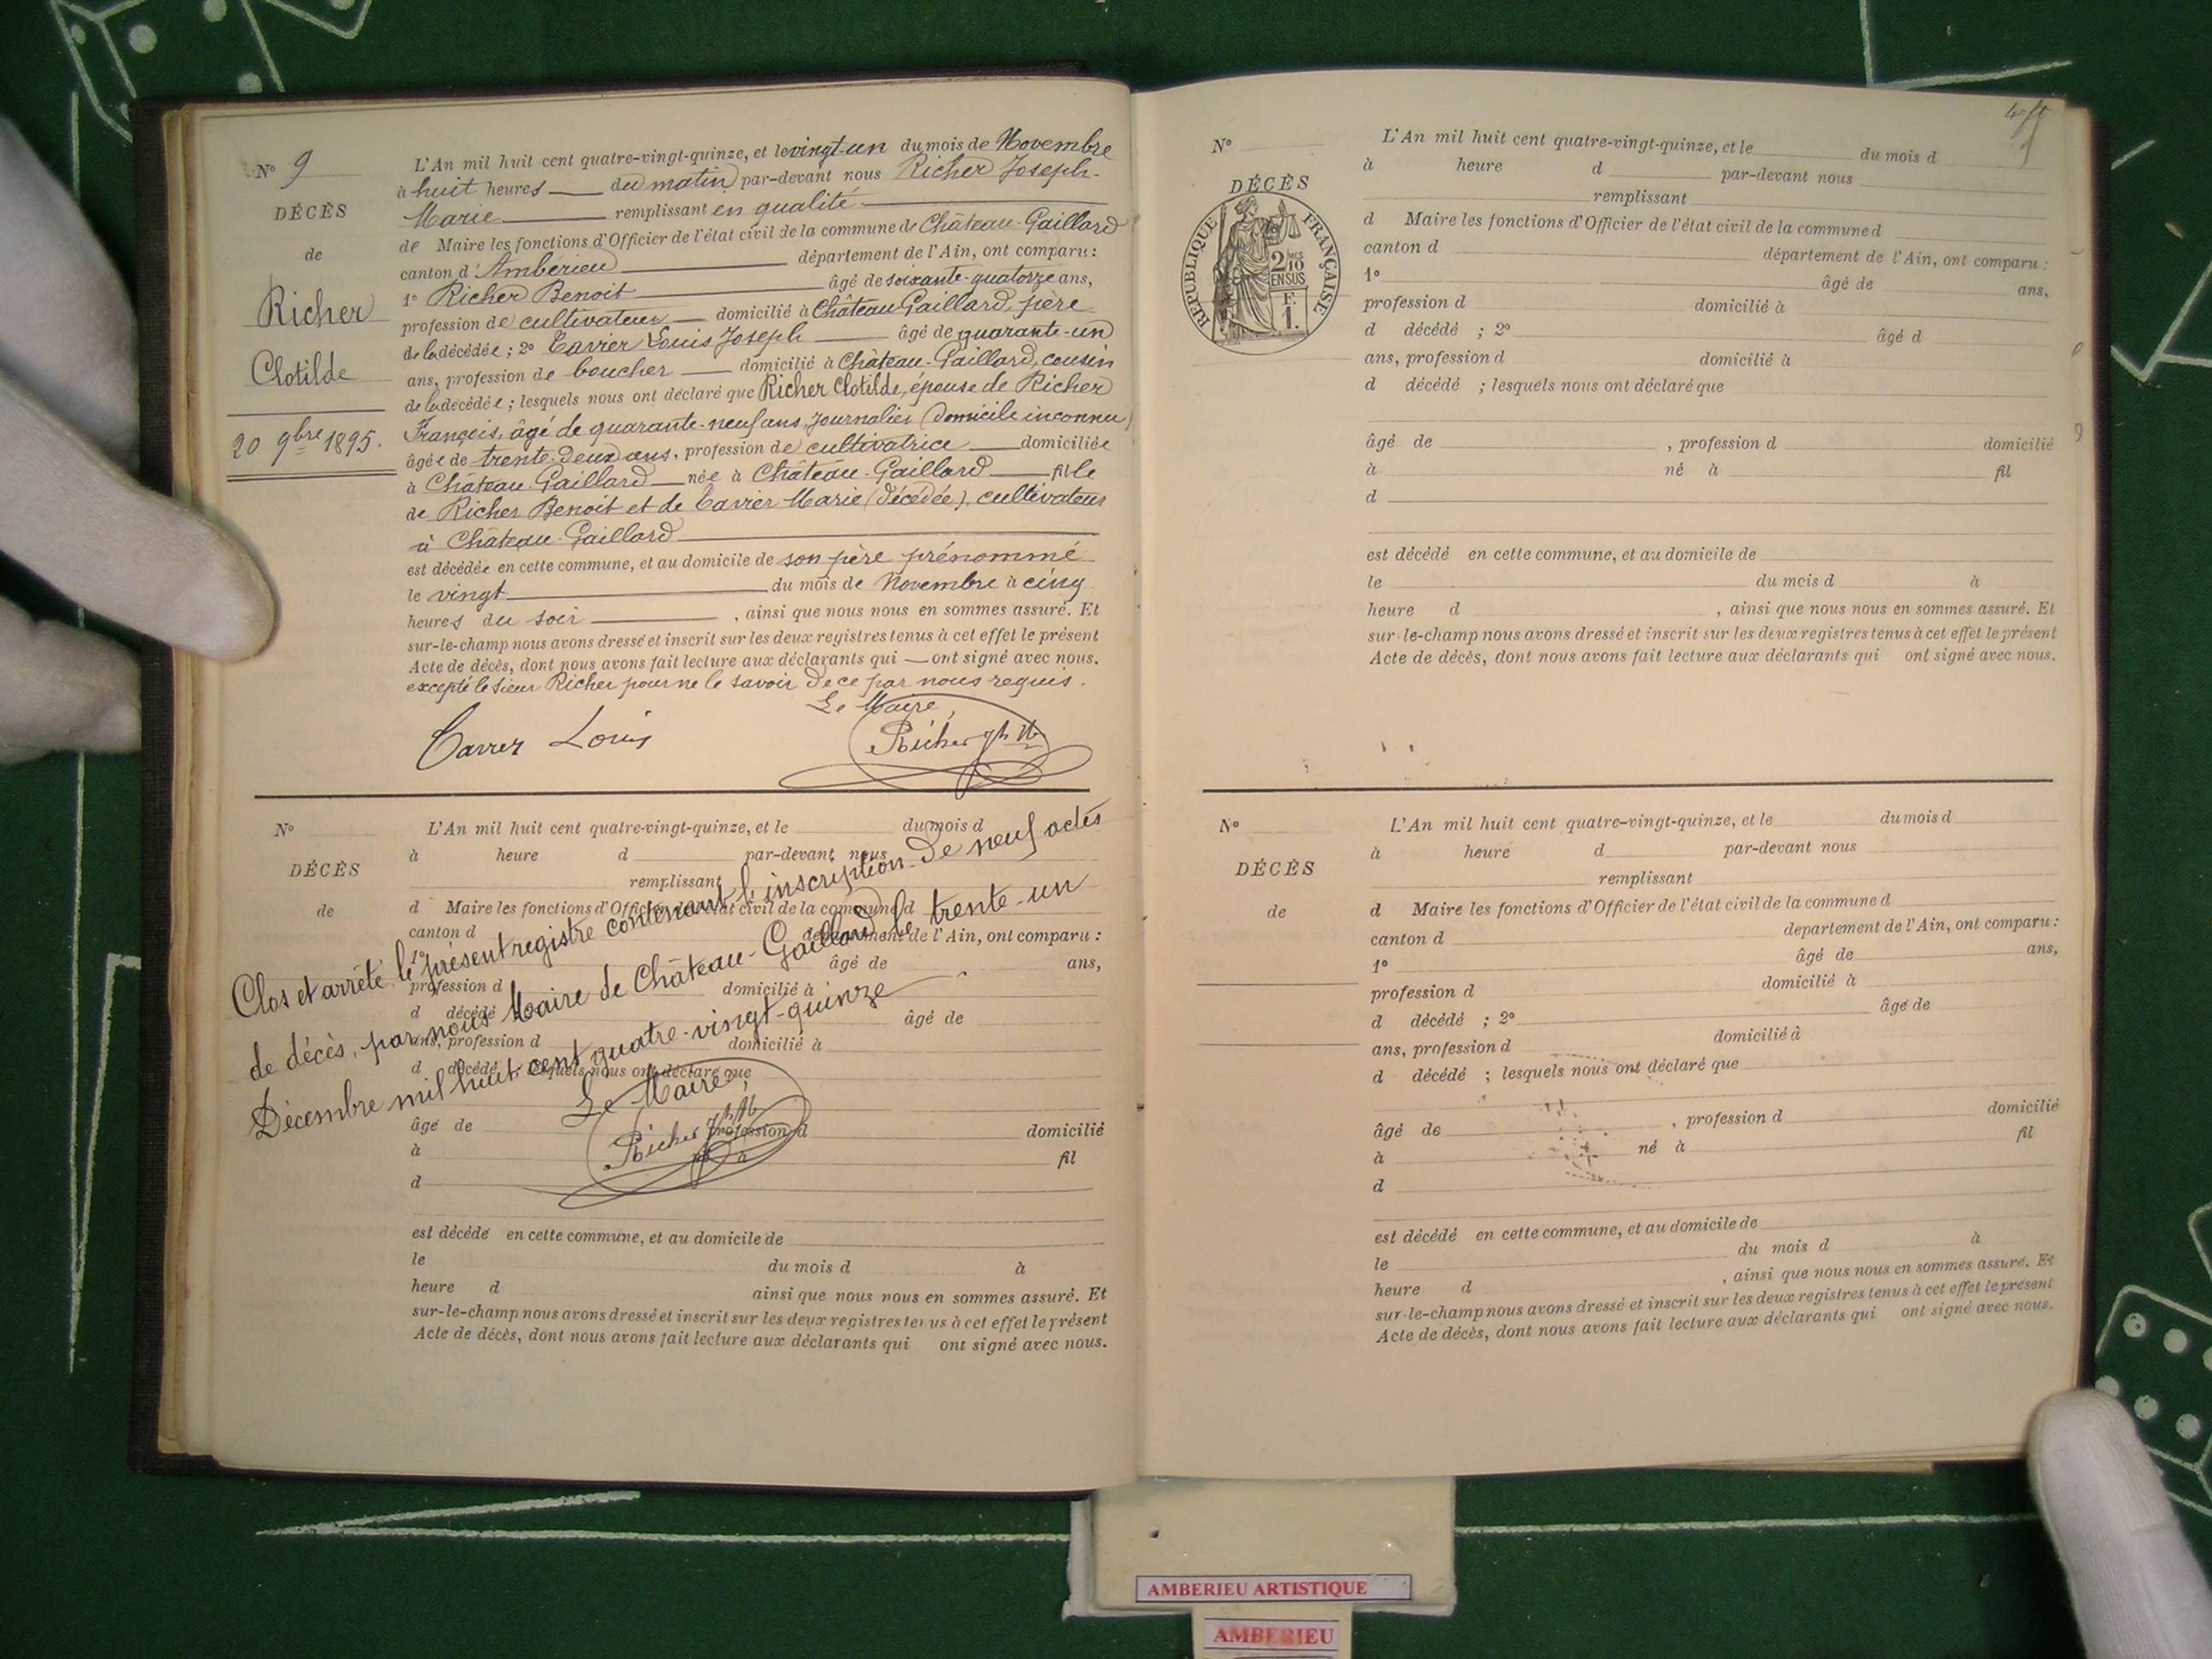 N° 9
DÉCÈS
de
Richer
Clotilde
20 9bre 1895.
L'An mil huit cent quatre-vingt-quinze, et le vingt-un du mois de Novembre
à huit heures du matin par-devant nous Richer Joseph-
Marie remplissant en qualité
de Maire les fonctions d'Officier de l'état civil de la commune de Château-Gaillard
canton d'Ambérieu département de l'Ain, ont comparu :
1° Richer Benoit âgé de soixante-quatorze ans,
profession de cultivateur domicilié à Château-Gaillard, père
de la décédée ; 2° Carrer Louis Joseph âgé de quarante-un
ans, profession de boucher domicilié à Château-Gaillard, cousin
de la décédée ; lesquels nous ont déclaré que Richer Clotilde, épouse de Richer
François, âgé de quarante-neuf ans, Journalier (domicile inconnu)
âgée de trente-deux ans, profession de cultivatrice domiciliée
à Château-Gaillard née à Château-Gaillard fille
de Richer Benoit et de Carrer Marie (décédée), cultivateur
à Château-Gaillard
est décédée en cette commune, et au domicile de son père prénommé
le vingt du mois de Novembre à cinq
heures du soir , ainsi que nous nous en sommes assuré. Et
sur-le-champ nous avons dressé et inscrit sur les deux registres tenus à cet effet le présent
Acte de décès, dont nous avons fait lecture aux déclarants qui — ont signé avec nous.
excepté le sieur Richer pour ne le savoir de ce par nous requis.
Le Maire,
Carrer Louis
Richer Jh Me
N°
DÉCÈS
de
L'An mil huit cent quatre-vingt-quinze, et le du mois d
à heure d par-devant nous
remplissant
d Maire les fonctions d'Officier de l'état civil de la commune d
canton d département de l'Ain, ont comparu :
1° âgé de ans,
profession d domicilié à
d décédé ; 2° âgé de
ans, profession d domicilié à
d décédé ; lesquels nous ont déclaré que
âgé de , profession d domicilié
à né à fil
d
est décédé en cette commune, et au domicile de
le du mois d à
heure d ainsi que nous nous en sommes assuré. Et
sur-le-champ nous avons dressé et inscrit sur les deux registres tenus à cet effet le présent
Acte de décès, dont nous avons fait lecture aux déclarants qui ont signé avec nous.
Clos et arrêté le présent registre contenant l'inscription de neuf actes
de décès, par nous Maire de Château-Gaillard le trente-un
Décembre mil huit cent quatre-vingt-quinze
Le Maire,
Richer Jh Me
N°
DÉCÈS
RÉPUBLIQUE FRANÇAISE
2/10 EN SUS
F. 1.
L'An mil huit cent quatre-vingt-quinze, et le du mois d
à heure d par-devant nous
remplissant
d Maire les fonctions d'Officier de l'état civil de la commune d
canton d département de l'Ain, ont comparu :
1° âgé de ans,
profession d domicilié à
d décédé ; 2° âgé d
ans, profession d domicilié à
d décédé ; lesquels nous ont déclaré que
âgé de , profession d domicilié
à né à fil
d
est décédé en cette commune, et au domicile de
le du mois d à
heure d , ainsi que nous nous en sommes assuré. Et
sur-le-champ nous avons dressé et inscrit sur les deux registres tenus à cet effet le présent
Acte de décès, dont nous avons fait lecture aux déclarants qui ont signé avec nous.
N°
DÉCÈS
de
L'An mil huit cent quatre-vingt-quinze, et le du mois d
à heure d par-devant nous
remplissant
d Maire les fonctions d'Officier de l'état civil de la commune d
canton d departement de l'Ain, ont comparu :
1° âgé de ans,
profession d domicilié à
d décédé ; 2° âgé de
ans, profession d domicilié à
d décédé ; lesquels nous ont déclaré que
âgé de , profession d domicilié
à né à fil
d
est décédé en cette commune, et au domicile de
le du mois d à
heure d , ainsi que nous nous en sommes assuré. Et
sur-le-champ nous avons dressé et inscrit sur les deux registres tenus à cet effet le présent
Acte de décès, dont nous avons fait lecture aux déclarants qui ont signé avec nous.
AMBERIEU ARTISTIQUE
AMBERIEU